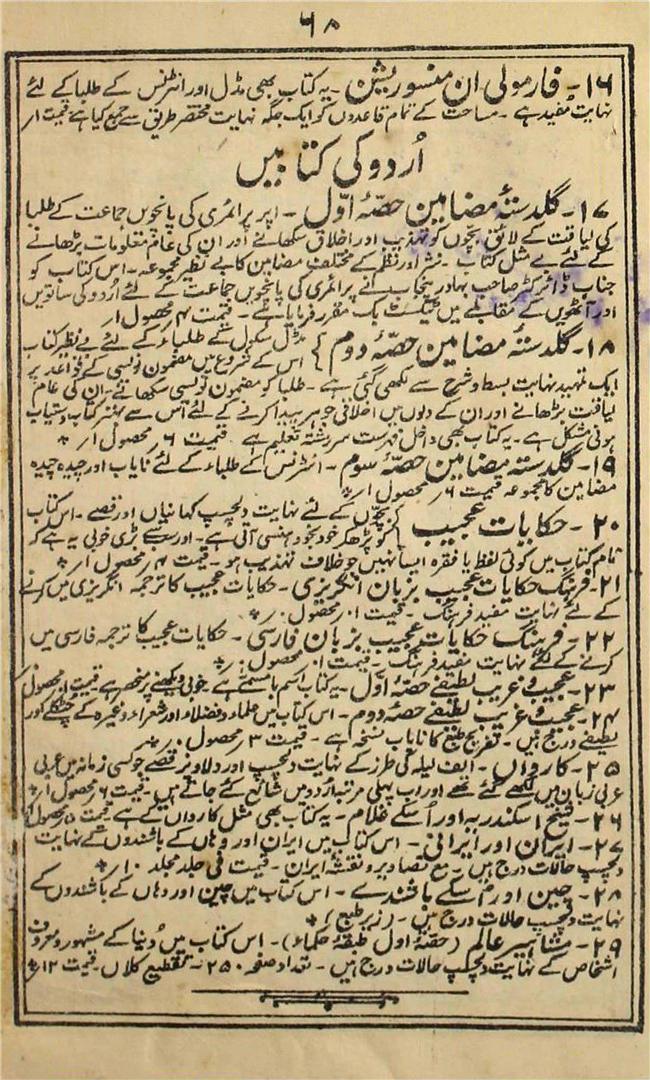 ۶۸
۱۶۔ فارمولی ان منسوریشن ۔ یہ کتاب بھی مڈل اور انٹرنس کے طلبا کے لئے
نہایت مفید ہے ۔ مساحت کے تمام قاعدوں کو ایک جگہ نہایت مختصر طریق سے جمع کیا ہے قیمت ۱ر
اُردو کی کتابیں
۱۷۔ گلدستۂ مضامین حصّۂ اوّل ۔ اپر پرائمری کی پانچویں جماعت کے طلبا
کی لیاقت کے لائق بچّوں کو تہذیب اور اخلاق سکھانے اور ان کی عام معلومات بڑھانے
کے لئے بے مثل کتاب ۔ نثر اور نظم کے مختلف مضامین کا بے نظیر مجموعہ ۔ اس کتاب کو
جناب ڈائرکٹر صاحب بہادر پنجاب نے پرائمری کی پانچویں جماعت کے لئے اُردو کی ساتویں
اور آٹھویں کے مقابلے میں ٹیکسٹ بک مقرر فرمایا ہے ۔ قیمت ۴ر محصول ۱ر
۱۸۔ گلدستۂ مضامین حصّۂ دوم } مڈل سکول کے طلباء کے لئے بے نظیر کتاب
اس کے شروع میں مضمون نویسی کے قواعد پر
ایک تمہید نہایت بسط و شرح سے لکھی گئی ہے ۔ طلبا کو مضمون نویسی سکھانے ۔ ان کی عام
لیاقت بڑھانے اور ان کے دلوں میں اخلاقی جوہر پیدا کرنے کے لئے اُس سے بہتر کتاب دستیاب
ہونی مشکل ہے ۔ یہ کتاب بھی داخل فہرست سررشتہ تعلیم ہے ۔ قیمت ۶ر محصول ۱ر ٭
۱۹۔ گلدستۂ مضامین حصّۂ سوم ۔ انٹرنس کے طلباء کے لئے نایاب اور چیدہ چیدہ
مضامین کا مجموعہ قیمت ۶ر محصول ۱ر ٭
۲۰۔ حکایات عجیب { بچّوں کے لئے نہایت دلچسپ کہانیاں اور قصے ۔ اس کتاب
کو پڑھکر خود بخود ہنسی آتی ہے ۔ اور سب سے بڑی خوبی یہ ہے کہ
تمام کتاب میں کوئی لفظ یا فقرہ ایسا نہیں جو خلاف تہذیب ہو ۔ قیمت ۴ر محصول ۱ر ٭
۲۱۔ فرہنگ حکایات عجیب بزبان انگریزی ۔ حکایات عجیب کا ترجمہ انگریزی میں کرنے
کے لئے نہایت مفید فرہنگ ۔ قیمت ۱ر محصول ۰ر ٭
۲۲۔ فرہنگ حکایات عجیب بزبان فارسی ۔ حکایات عجیب کا ترجمہ فارسی میں
کرنے کے لئے نہایت مفید فرہنگ ۔ قیمت ۱ر محصول ۰ر ٭
۲۳۔ عجیب و غریب لطیفے حصّۂ اوّل ۔ یہ کتاب اسم بامسمّٰے ہے خوبی دیکھنے پر منحصر ہے قیمت محصول
۲۴۔ عجیب و غریب لطیفے حصّۂ دوم ۔ اس کتاب میں علماء و فضلاء اور شعراء وغیرہ کے چٹکلے اور
لطیفے درج ہیں ۔ تفریح طبع کا نایاب نسخہ ہے ۔ قیمت ۳ر محصول ۰ر ٭
۲۵۔ کارواں ۔ الف لیلہ کی طرز کے نہایت دلچسپ اور دلاویز قصے جو کسی زمانہ میں عربی
عربی زبان میں لکھے گئے تھے اور اب پہلی مرتبہ اُردو میں شائع کئے جاتے ہیں ۔ قیمت ۶ر محصول ۱ر ٭
۲۶۔ شیخ اسکندریہ اور اُسکے غلام ۔ یہ کتاب بھی مثل کارواں کے ہے قیمت محصول
۲۷۔ ایران اور ایرانی ۔ اس کتاب میں ایران اور وہاں کے باشندوں کے نہایت
دلچسپ حالات درج ہیں ۔ مع تصاویر و نقشۂ ایران ۔ قیمت فی جلد مجلد ۱۰ر ٭
۲۸۔ چین اور اُسکے باشندے ۔ اس کتاب میں چین اور وہاں کے باشندوں کے
نہایت دلچسپ حالات درج ہیں ۔ (زیر طبع) ٭
۲۹۔ مشاہیر عالم (حصّۂ اول طبقۂ حکماء) ۔ اس کتاب میں دُنیا کے مشہور و معروف
اشخاص کے نہایت دلچسپ حالات درج ہیں ۔ تعداد صفحہ ۲۵۰ ۔ تقطیع کلاں ۔ قیمت ۱۲ر ٭